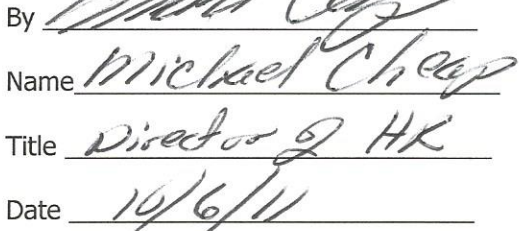 By
Name Michael Cheap
Title Director of HR
Date 10/6/11